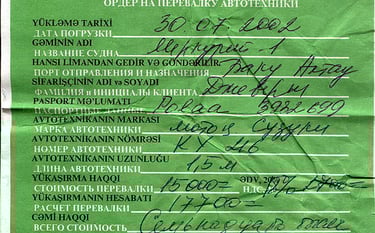 ОРДЕР НА ПЕРЕВАЛКУ АВТОТЕХНИКИ
YÜKLƏMƏ TARİXİ 30.07.2002
ДАТА ПОГРУЗКИ
GƏMİNİN ADI Меркурий-1
НАЗВАНИЕ СУДНА
HANSI LİMANDAN GEDİR VƏ GÖNDƏRİLİR. Баку Актау
ПОРТ ОТПРАВЛЕНИЯ И НАЗНАЧЕНИЯ
SİFARİŞÇİNİN ADI və SOYADI
ФАМИЛИЯ и ИНИЦИАЛЫ КЛИЕНТА
PASPORT MƏLUMATI
ПАСПОРТНЫЕ ДАННЫЕ
AVTOTEXNİKANIN MARKASI
МАРКА АВТОТЕХНИКИ мотоц Сузуки
AVTOTEXNİKANIN NÖMRƏSİ
НОМЕР АВТОТЕХНИКИ
AVTOTEXNİKANIN UZUNLUĞU
ДЛИНА АВТОТЕХНИКИ 1,5 м
YÜKAŞIRMA HAQQI ƏDV
СТОИМОСТЬ ПЕРЕВАЛКИ 15000= НДС 2700=
YÜKAŞIRMANIN HESABATI
РАСЧЕТ ПЕРЕВАЛКИ 17700=
CƏMİ HAQQI
ВСЕГО СТОИМОСТЬ Семьнадцать